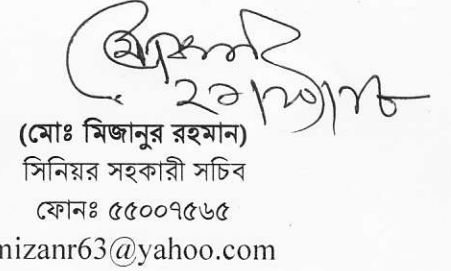 (মোঃ মিজানুর রহমান)
সিনিয়র সহকারী সচিব
ফোনঃ ৫৫০০৭৫৬৫
mizanr63@yahoo.com